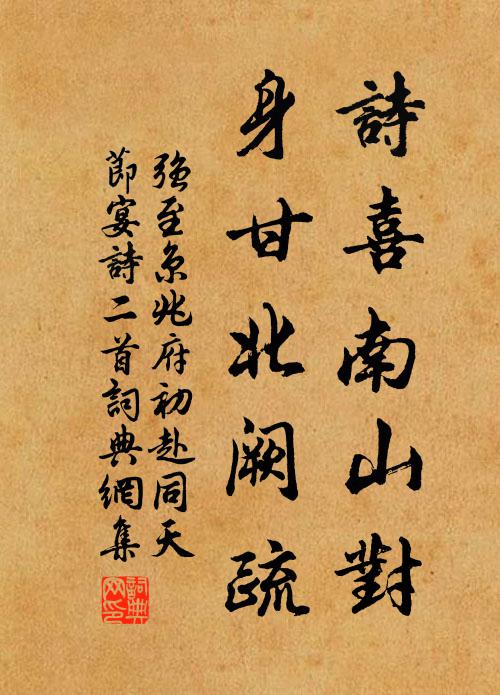 詩喜南山對
身甘北闕疏
強至京兆府初赴同天
節宴詩二首詞典網集
詞典網印